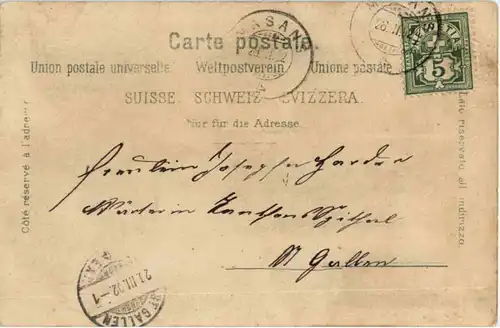 Carte postale.
Union postale universelle. Weltpostverein. Unione postale
SUISSE. SCHWEIZ. SVIZZERA.
Nur für die Adresse.
Côté réservé à l'adresse
Lato riservato all'indirizzo.
5
Fräulein Josepha
Wärterin Kantons Spithal
St Gallen
21.III.02.-1
ST GALLEN